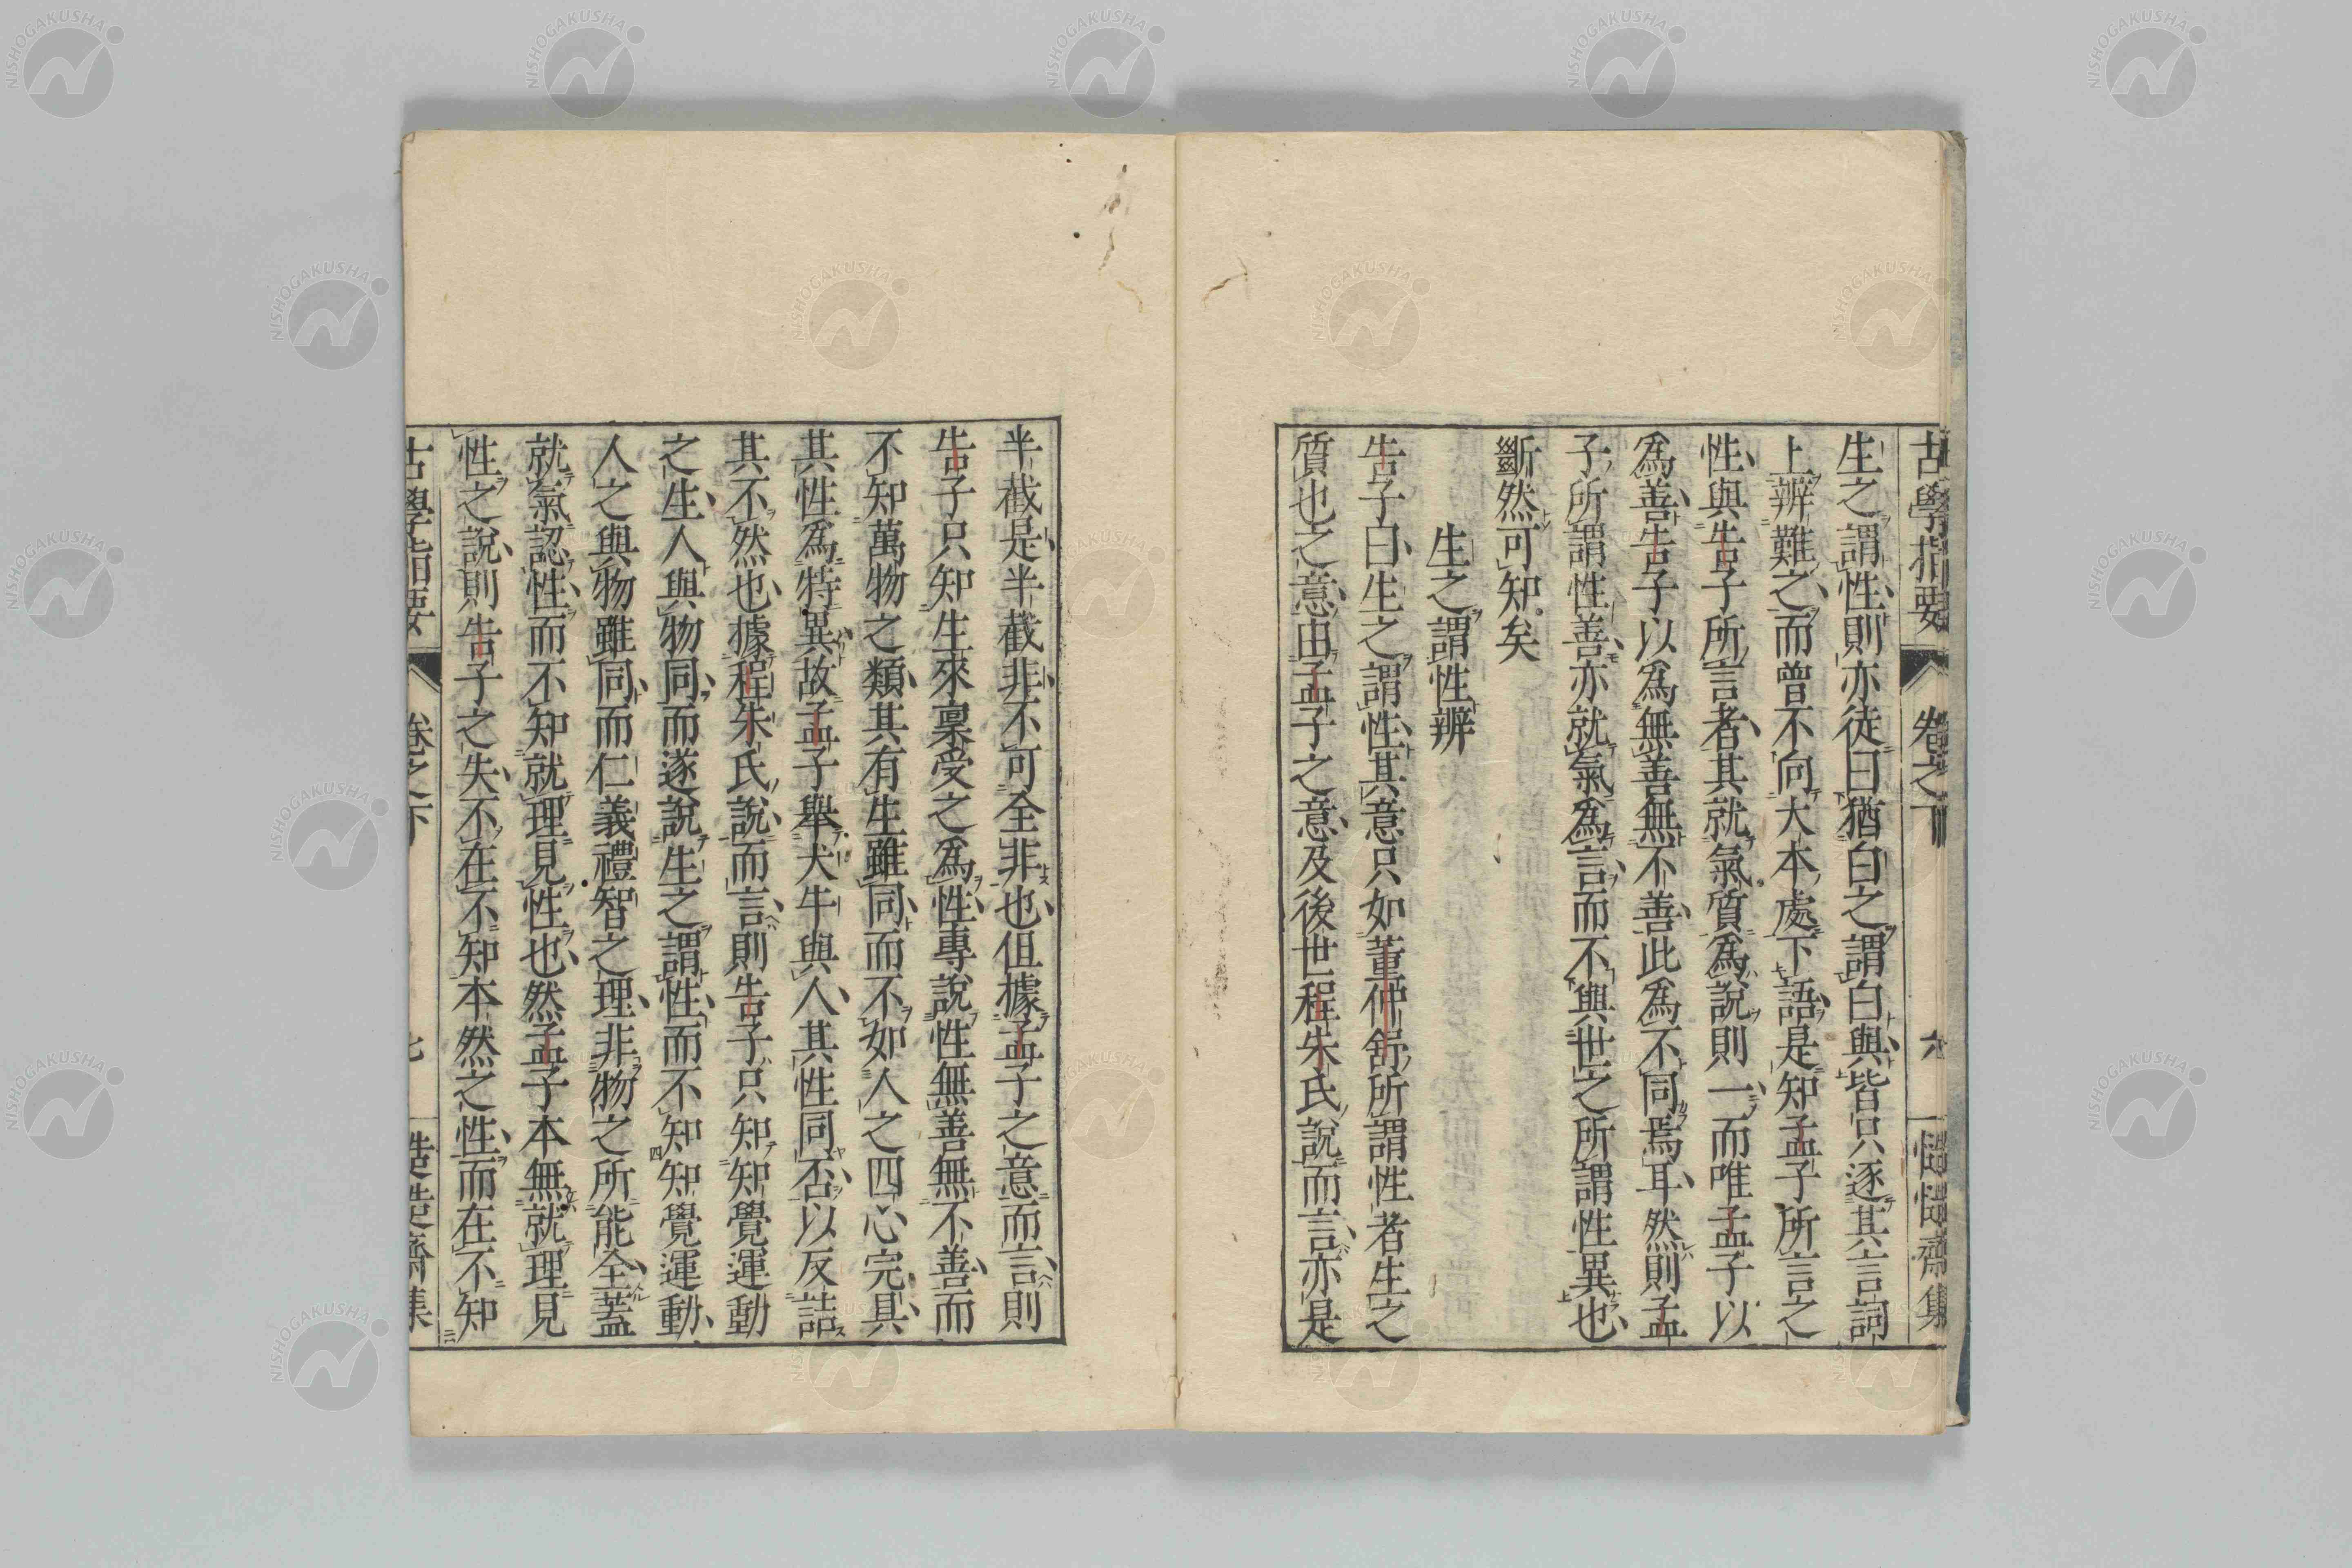 古學指要 卷之下 六 慥慥齋集
生之謂性則亦徒曰猶白之謂白與皆只逐其言詞
上辨難之而曾不向大本處下語是知孟子所言之
性與告子所言者其就氣質爲說則一而唯孟子以
爲善告子以爲無善無不善此爲不同焉耳然則孟
子所謂性善亦就氣爲言而不與世之所謂性異也
斷然可知矣
生之謂性辨
告子曰生之謂性其意只如董仲舒所謂性者生之
質也之意由孟子之意及後世程朱氏說而言亦是
半截是半截非不可全非也但據孟子之意而言則
告子只知生來稟受之爲性專說性無善無不善而
不知萬物之類其有生雖同而不如人之四心完具
其性爲特異故孟子舉犬牛與人其性同否以反詰
其不然也據程朱氏說而言則告子只知知覺運動
之生人與物同而遂說生之謂性而不知知覺運動
人之與物雖同而仁義禮智之理非物之所能全蓋
就氣認性而不知就理見性也然孟子本無就理見
性之說則告子之失不在不知本然之性而在不知
古學指要 卷之下 七 慥慥齋集